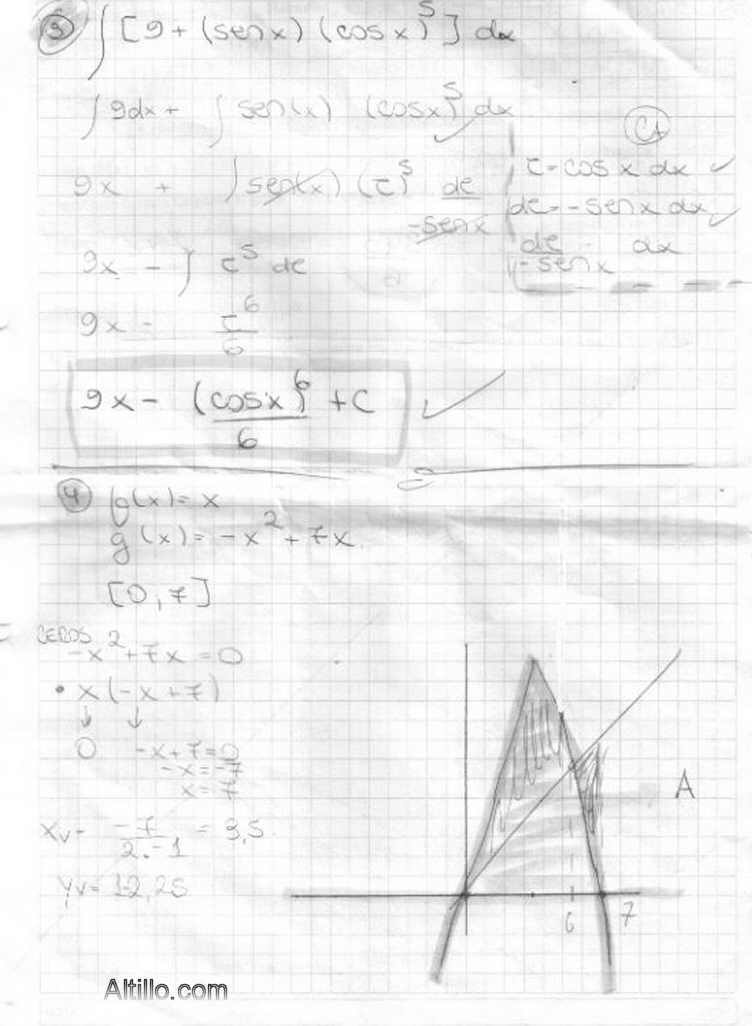 3) ∫ [9 + (sen x) (cos x)^5] dx
∫ 9dx + ∫ sen(x) (cosx)^5 dx
CA
t = cos x dx
dt = -sen x dx
dt/-sen x = dx
9x + ∫ sen(x) (t)^5 dt/-sen x
9x - ∫ t^5 dt
9x - t^6/6
9x - (cosx)^6/6 + C
4) f(x) = x
g(x) = -x^2 + 7x
[0,7]
CEROS
-x^2 + 7x = 0
• x(-x+7)
↓ ↓
0 -x+7=0
-x=-7
x=7
Xv= -7/2.-1 = 3,5
Yv= 12,25
A
6 7
Altillo.com